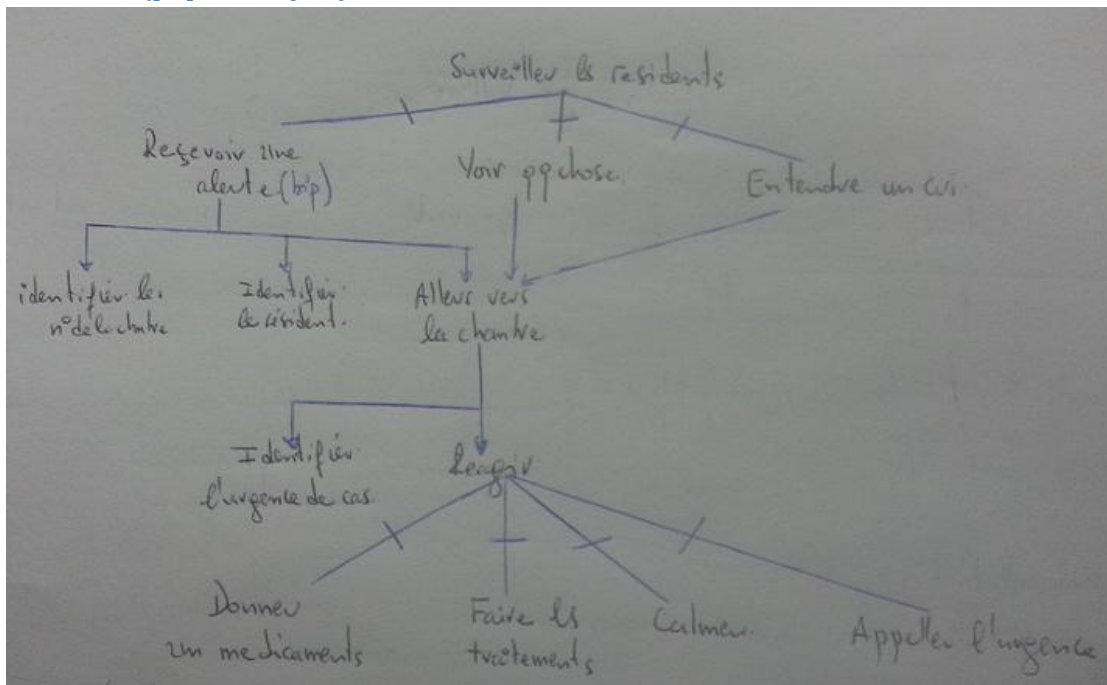 Surveiller ls residents
Reçevoir une
alerte (bip)
Voir qqchose.
Entendre un cri.
identifier les
n° de la chmbre
Identifier
le résident.
Alleur vers
la chambre
Identifier
l'urgence de cas.
Reagir
Donner
un medicaments
Faire ls
traitements
Calmer.
Appeller l'urgence